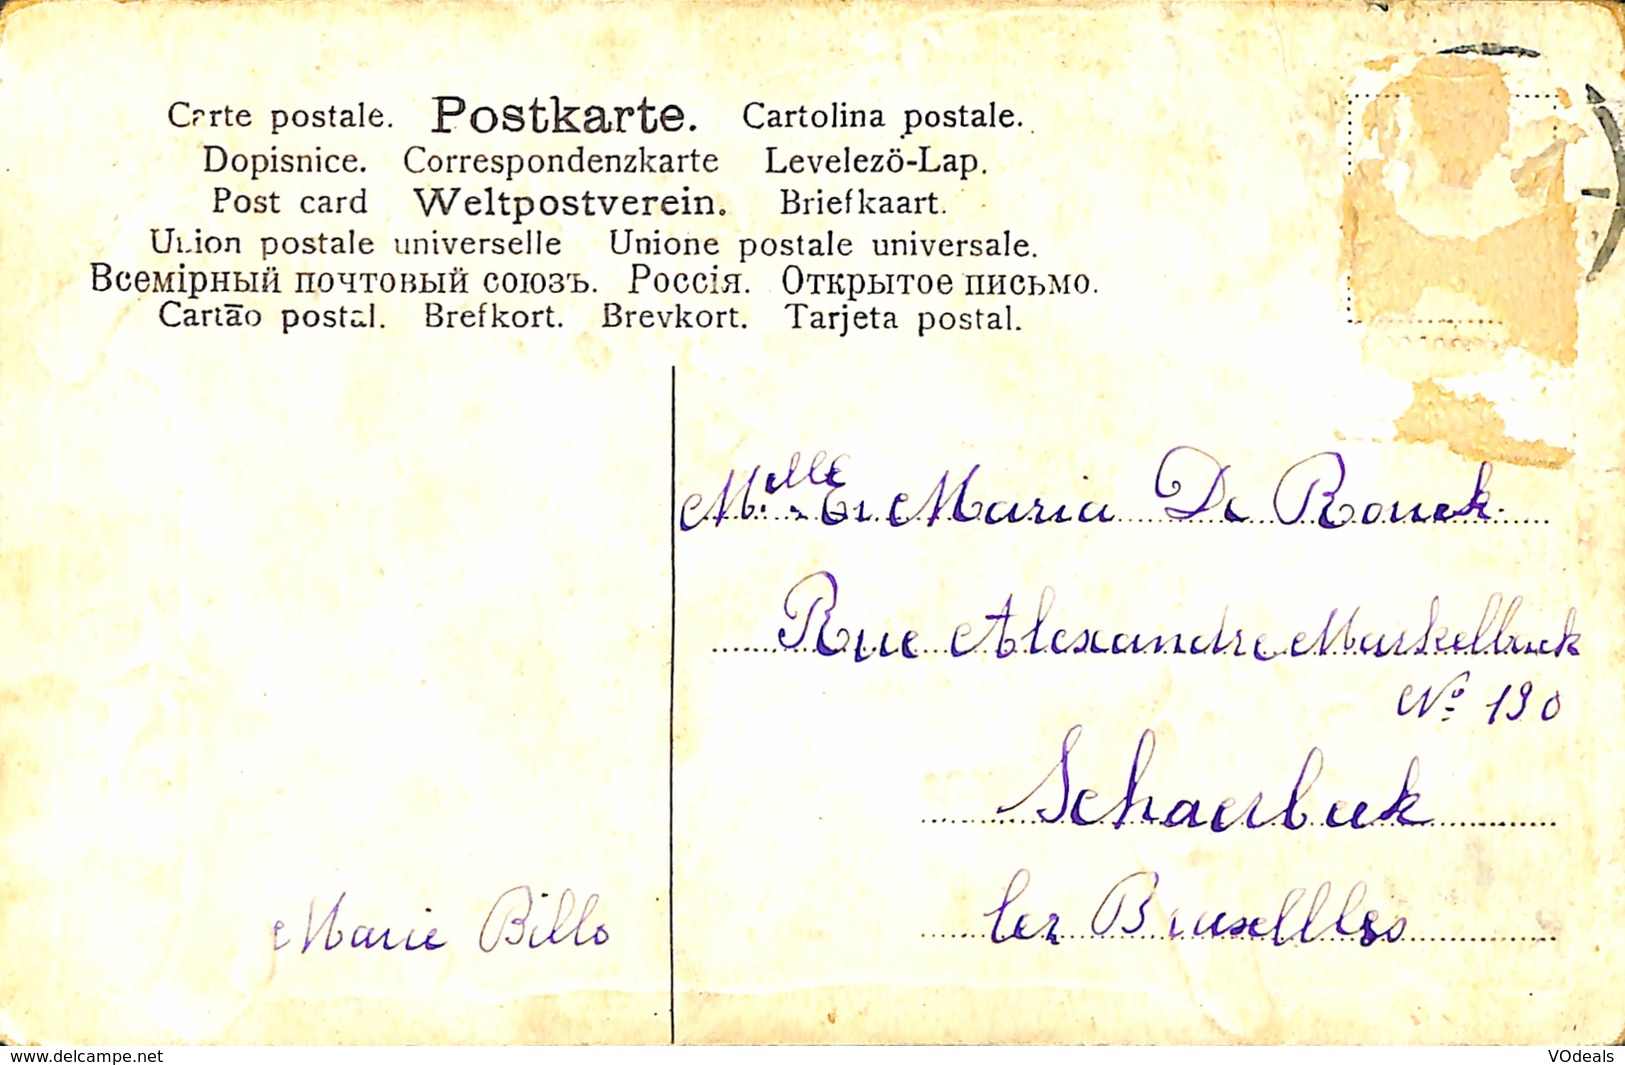 Carte postale. Postkarte. Cartolina postale.
Dopisnice. Correspondenzkarte Levelezö-Lap.
Post card Weltpostverein. Briefkaart.
Union postale universelle Unione postale universale.
Всемірный почтовый союзъ. Россія. Открытое письмо.
Cartão postal. Brefkort. Brevkort. Tarjeta postal.
Melle Maria De Rouck
Rue Alexandre Markelback
No 190
Schaerbeek
lez Bruxelles
Marie Billo
delcampe.net
VOdeals